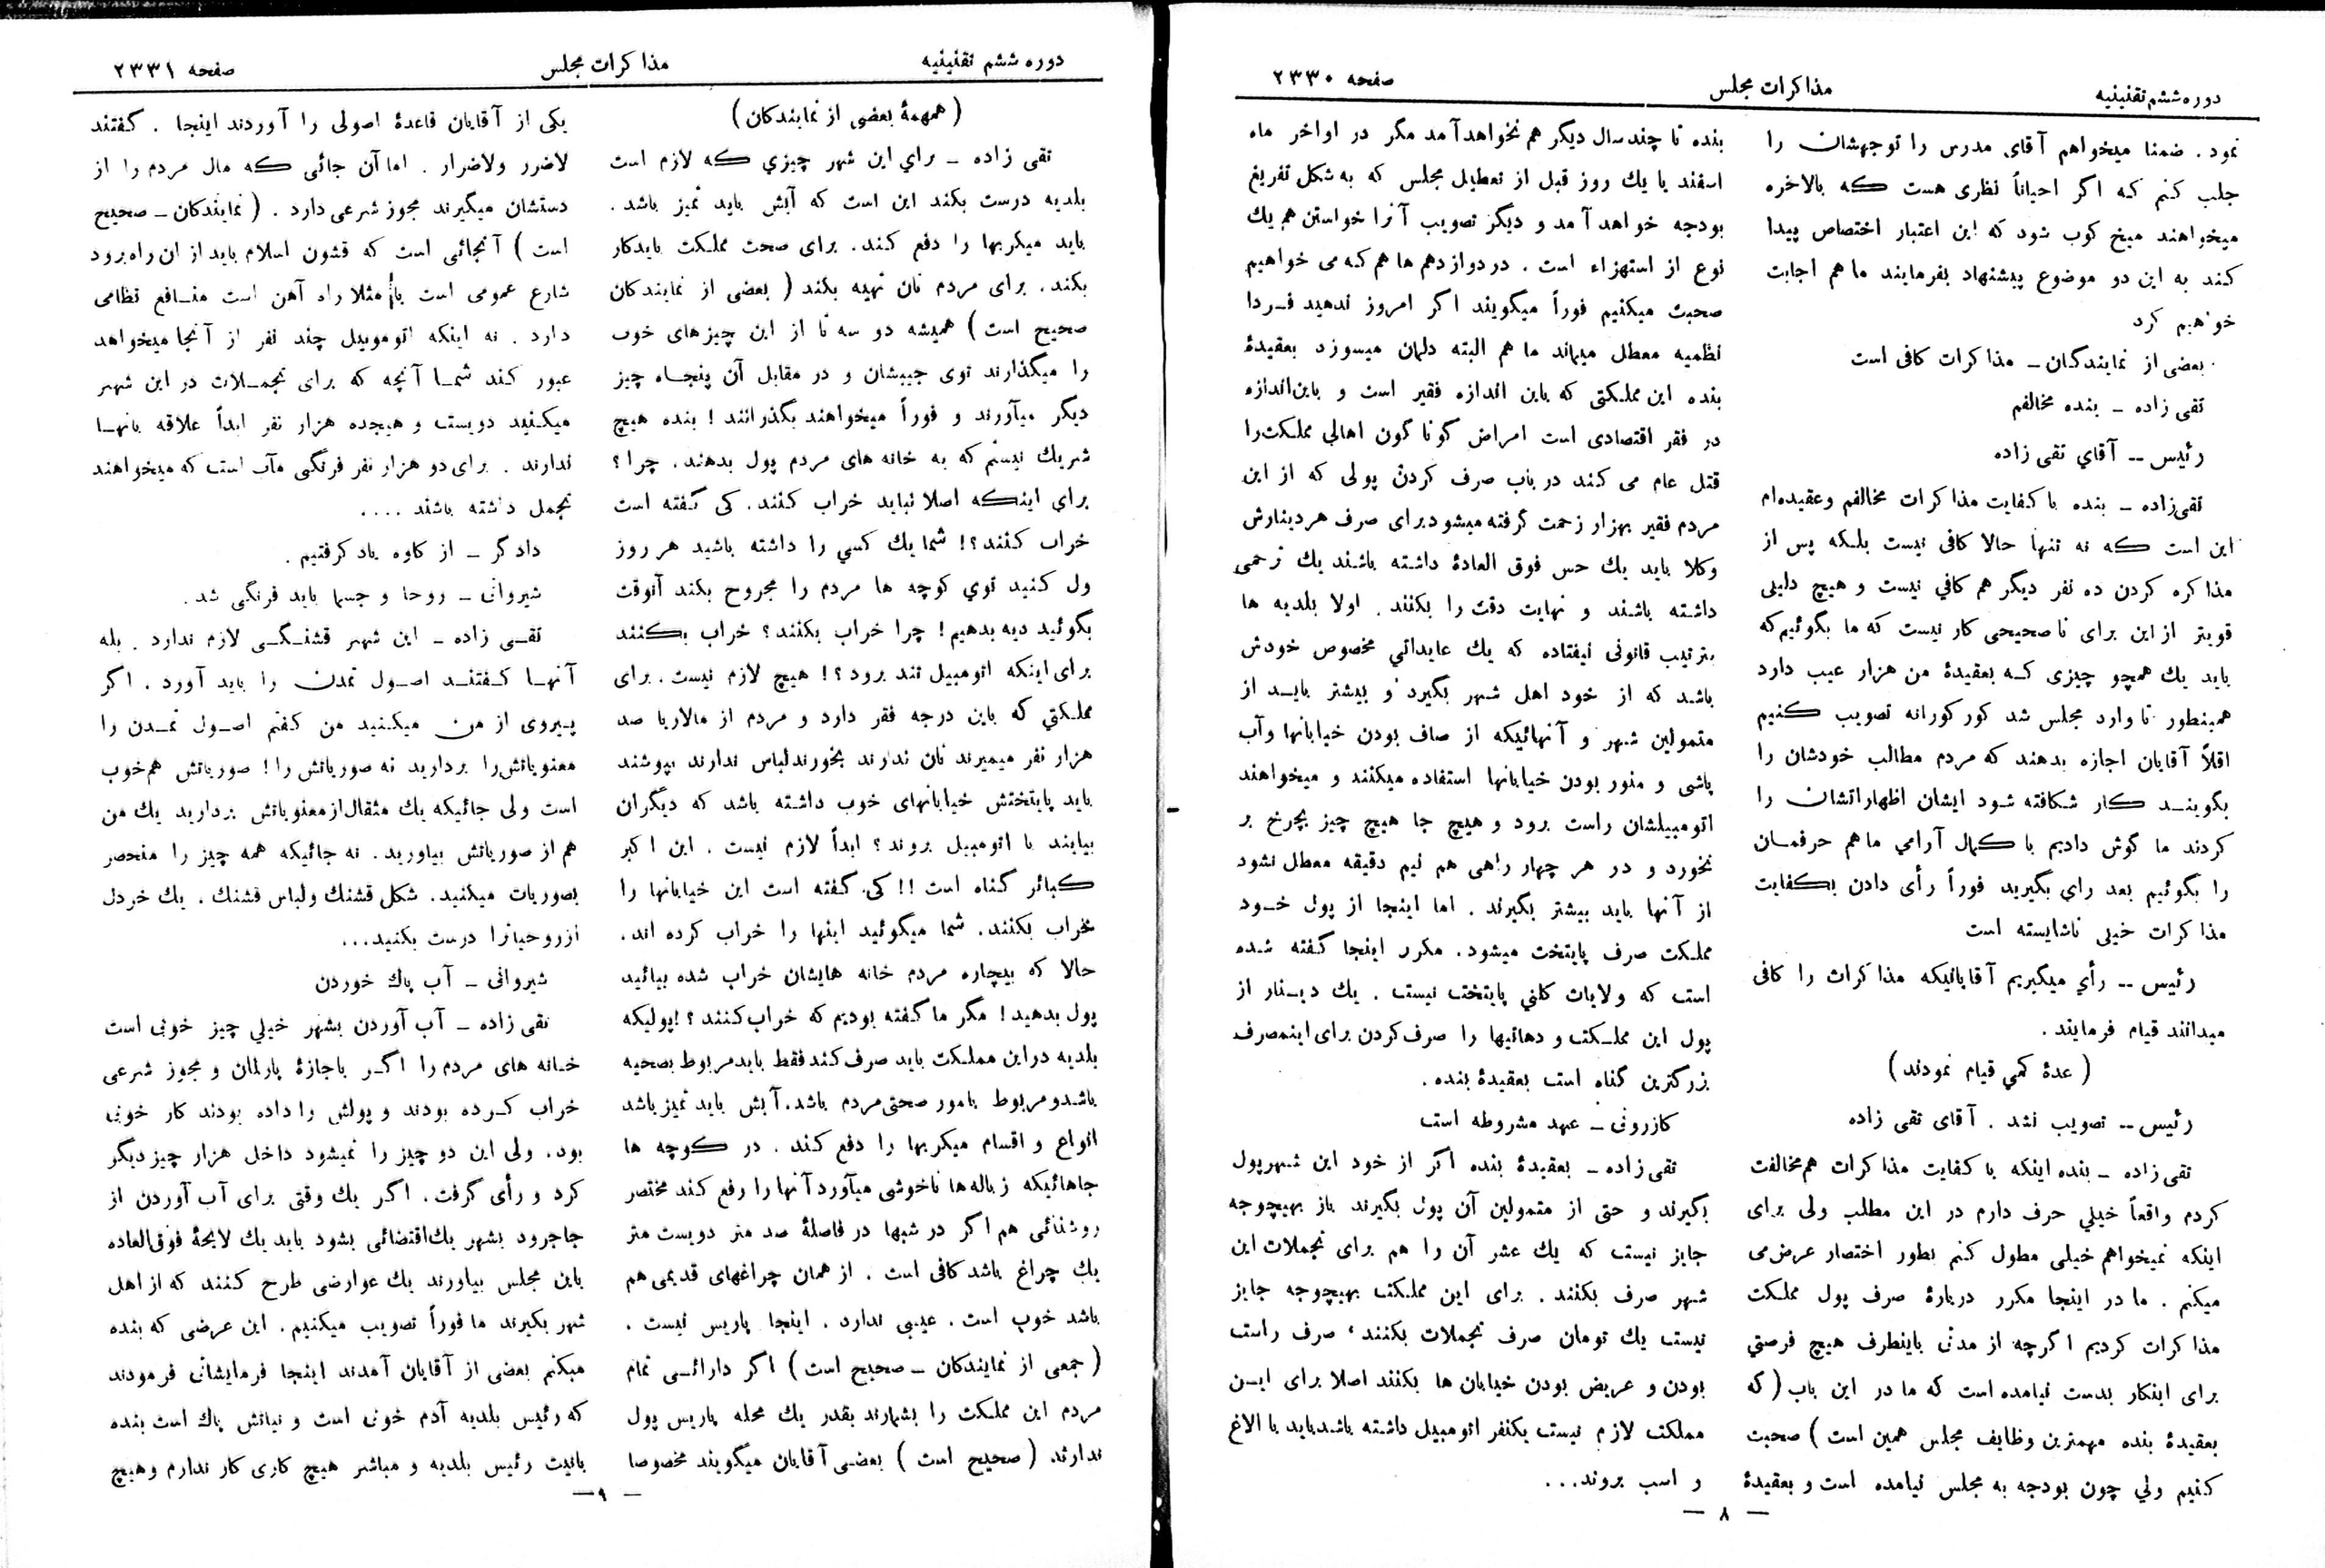 دوره ششم تقنینیه
مذاکرات مجلس
صفحه ۲۳۳۰
نمود . ضمنا میخواهم آقای مدرس را توجهشان را
جلب کنم که اگر احیاناً نظری هست که بالاخره
میخواهند میخ کوب شود که این اعتبار اختصاص پیدا
کند به این دو موضوع پیشنهاد بفرمایند ما هم اجابت
خواهیم کرد
بعضی از نمایندگان ـ مذاکرات کافی است
تقی زاده ـ بنده مخالفم
رئیس -- آقاي تقی زاده
تقی‌زاده ـ بنده با کفایت مذاکرات مخالفم وعقیده‌ام
این است که نه تنها حالا کافی نیست بلکه پس از
مذاکره کردن ده نفر دیگر هم کافي نیست و هیچ دلیلی
قویتر از این برای ناصحیحی کار نیست که ما بگوئیم که
باید یك همچو چیزی که بعقیدۀ من هزار عیب دارد
همینطور تا وارد مجلس شد کورکورانه تصویب کنیم
اقلاً آقایان اجازه بدهند که مردم مطالب خودشان را
بگویند کار شکافته شود ایشان اظهاراتشان را
کردند ما گوش دادیم با کمال آرامي ماهم حرفمان
را بگوئیم بعد راي بگیرید فوراً رأی دادن بکفایت
مذاکرات خیلی ناشایسته است
رئیس -- رأي میگیریم آقایانیکه مذاکرات را کافی
میدانند قیام فرمایند .
( عدۀ کمي قیام نمودند )
رئیس -- تصویب نشد . آقای تقی زاده
تقی زاده ـ بنده اینکه با کفایت مذاکرات هم مخالفت
کردم واقعاً خیلي حرف دارم در این مطلب ولی برای
اینکه نمیخواهم خیلی مطول کنم بطور اختصار عرض می
میکنم . ما در اینجا مکرر دربارۀ صرف پول مملکت
مذاکرات کردیم اگرچه از مدتی باینطرف هیچ فرصتي
برای اینکار بدست نیامده است که ما در این باب ( که
بعقیدۀ بنده مهمترین وظایف مجلس همین است ) صحبت
کنیم ولي چون بودجه به مجلس نیامده است و بعقیدۀ
بنده تا چند سال دیگر هم نخواهد آمد مگر در اواخر ماه
اسفند یا یك روز قبل از تعطیل مجلس که به شکل تفریغ
بودجه خواهد آمد و دیگر تصویب آنرا خواستن هم یك
نوع از استهزاء است . در دوازدهم ها هم که می خواهیم
صحبت میکنیم فوراً میگویند اگر امروز ندهید فردا
نظمیه معطل میماند ما هم البته دلمان میسوزد بعقیدۀ
بنده این مملکتی که باین اندازه فقیر است و باین‌اندازه
در فقر اقتصادی است امراض گوناگون اهالي مملکت را
قتل عام می کند در باب صرف کردن پولی که از این
مردم فقیر بهزار زحمت گرفته میشود برای صرف هر دینارش
وکلا باید یك حس فوق العادۀ داشته باشند یك ترحمی
داشته باشند و نهایت دقت را بکنند . اولا بلدیه ها
بترتیب قانونی نیفتاده که یك عایداتي مخصوص خودش
باشد که از خود اهل شهر بگیرد و بیشتر باید از
متمولین شهر و آنهائیکه از صاف بودن خیابانها وآب
پاشی و منور بودن خیابانها استفاده میکنند و میخواهند
اتومبیلشان راست برود و هیچ جا هیچ چیز بچرخ بر
نخورد و در هر چهار راهی هم نیم دقیقه معطل نشود
از آنها باید بیشتر بگیرند . اما اینجا از پول خود
مملکت صرف پایتخت میشود. مکرر اینجا گفته شده
است که ولایات کلني پایتخت نیست . یك دینار از
پول این مملکت و دهاتیها را صرف کردن برای اینمصرف
بزرگترین گناه است بعقیدۀ بنده .
کازرونی ـ عهد مشروطه است
تقی زاده ـ بعقیدۀ بنده اگر از خود این شهر پول
بگیرند و حتی از متمولین آن پول بگیرند باز بهیچوجه
جایز نیست که یك عشر آن را هم برای تجملات این
شهر صرف بکنند . برای این مملکت بهیچوجه جایز
نیست یك تومان صرف تجملات بکنند ، صرف راست
بودن و عریض بودن خیابان ها بکنند اصلا برای این
مملکت لازم نیست یکنفر اتومبیل داشته باشد باید با الاغ
و اسب بروند...
— ۸ —
دوره ششم تقنینیه
مذاکرات مجلس
صفحه ۲۳۳۱
( همهمۀ بعضی از نمایندکان )
تقی زاده ـ براي این شهر چیزي که لازم است
بلدیه درست بکند این است که آبش باید تمیز باشد .
باید میکربها را دفع کند. برای صحت مملکت بایدکار
بکند . برای مردم نان تهیه بکند ( بعضی از نمایندکان
صحیح است ) همیشه دو سه تا از این چیزهای خوب
را میگذارند توی جیبشان و در مقابل آن پنجاه چیز
دیگر میآورند و فوراً میخواهند بگذرانند ! بنده هیچ
شریك نیستم که به خانه های مردم پول بدهند. چرا ؟
براي اینکه اصلا نباید خراب کنند. کی گفته است
خراب کنند؟! شما یك کسي را داشته باشید هر روز
ول کنید توي کوچه ها مردم را مجروح بکند آنوقت
بگوئید دیه بدهیم ! چرا خراب بکنند ؟ خراب بکنند
برای اینکه اتومبیل تند برود ؟! هیچ لازم نیست . برای
مملکتي که باین درجه فقر دارد و مردم از مالاریا صد
هزار نفر میمیرند نان ندارند بخورند لباس ندارند بپوشند
باید پایتختش خیابانهای خوب داشته باشد که دیگران
بیایند با اتومبیل بروند ؟ ابداً لازم نیست . این اکبر
کبائر گناه است !! کی گفته است این خیابانها را
خراب بکنند. شما میگوئید اینها را خراب کرده اند.
حالا که بیچاره مردم خانه هایشان خراب شده بیائید
پول بدهید ! مگر ما گفته بودیم که خراب کنند ؟! پولیکه
بلدیه در این مملکت باید صرف کند فقط باید مربوط بصحیه
باشد و مربوط بامور صحتی مردم باشد. آبش باید تمیز باشد
انواع و اقسام میکربها را دفع کند . در کوچه ها
جاهائیکه زباله‌ها ناخوشی میآورد آنها را رفع کند مختصر
روشنائی هم اگر در شبها در فاصلۀ صد متر دویست متر
یك چراغ باشد کافی است . از همان چراغهای قدیمی هم
باشد خوب است . عیبی ندارد . اینجا پاریس نیست .
( جمعی از نمایندکان ـ صحیح است ) اگر دارائی تمام
مردم این مملکت را بشمارند بقدر یك محله پاریس پول
ندارند ( صحیح است ) بعضی آقایان میگویند مخصوصا
یکی از آقایان قاعدۀ اصولی را آوردند اینجا . گفتند
لاضرر ولاضرار . اما آن جائی که مال مردم را از
دستشان میگیرند مجوز شرعی دارد . ( نمایندکان ـ صحیح
است ) آنجائی است که قشون اسلام باید از ان راه برود
شارع عمومی است یا مثلا راه آهن است منافع نظامی
دارد . نه اینکه اتوموبیل چند نفر از آنجا میخواهد
عبور کند شما آنچه که برای تجملات در این شهر
میکنید دویست و هیجده هزار نفر ابداً علاقه بانها
ندارند . برای دو هزار نفر فرنگی مآب است که میخواهند
تجمل داشته باشند ....
دادگر ـ از کاوه یاد گرفتیم .
شیروانی ـ روحا و جسما باید فرنگی شد .
تقی زاده ـ این شهر قشنگی لازم ندارد . بله
آنها گفتند اصول تمدن را باید آورد . اگر
پیروی از من میکنید من گفتم اصول تمدن را
معنویاتش‌را بردارید نه صوریاتش را ! صوریاتش هم خوب
است ولی جائیکه یك مثقال از معنویاتش بردارید یك من
هم از صوریاتش بیاورید . نه جائیکه همه چیز را منحصر
بصوریات میکنید. شکل قشنك ولباس قشنك . یك خردل
از روحیاترا درست بکنید...
شیروانی ـ آب پاك خوردن
تقی زاده ـ آب آوردن بشهر خیلي چیز خوبی است
خانه های مردم را اگر باجازۀ پارلمان و مجوز شرعی
خراب کرده بودند و پولش را داده بودند کار خوبی
بود . ولی این دو چیز را نمیشود داخل هزار چیز دیگر
کرد و رأی گرفت . اگر یك وقتی برای آب آوردن از
جاجرود بشهر یك اقتضائی بشود باید یك لایحۀ فوق‌العاده
باین مجلس بیاورند یك عوارضی طرح کنند که از اهل
شهر بگیرند ما فوراً تصویب میکنیم . این عرضی که بنده
میکنم بعضی از آقایان آمدند اینجا فرمایشاتی فرمودند
که رئیس بلدیه آدم خوبی است و نیاتش پاك است بنده
بانیت رئیس بلدیه و مباشر هیچ کاری کار ندارم وهیچ
— ۹ —